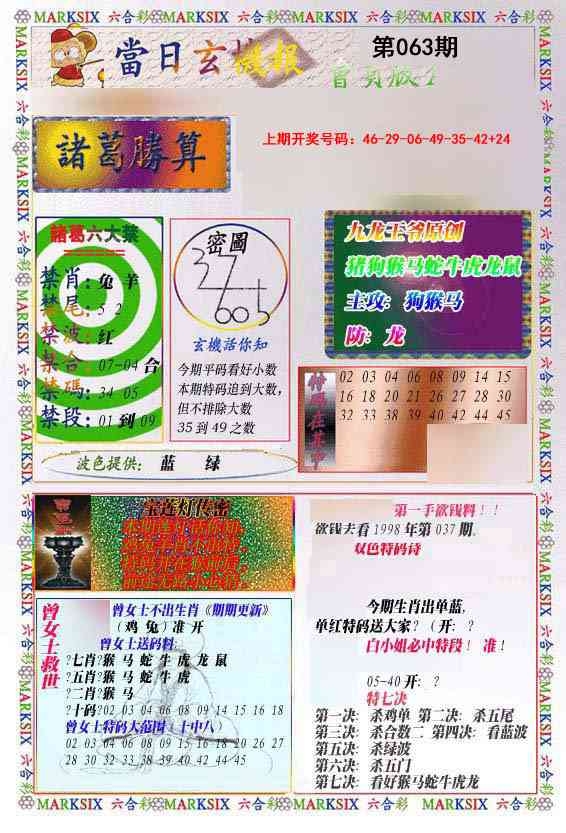 MARKSIX 六合彩 MARKSIX 六合彩 MARKSIX 六合彩 MARKSIX 六合彩 MARKSIX
當日玄機報
第063期
上期开奖号码：46-29-06-49-35-42+24
諸葛勝算
諸葛六大禁
禁肖：兔 羊
禁尾：5 2
禁波：红
禁合：07-04 合
禁碼：34 05
禁段：01 到 09
密圖
玄機話你知
今期平码看好小数
本期特码追到大数，
但不排除大数
35 到 49 之数
波色提供： 蓝 绿
九龙王爷原创
猪狗猴马蛇牛虎龙鼠
主攻：狗猴马
防：龙
特码在其中
02 03 04 06 08 09 14 15
16 18 20 21 26 27 28 30
32 33 38 39 40 42 44 45
宝莲灯传密
曾女士救世
曾女士不出生肖《期期更新》
（鸡 兔）准 开
曾女士送码料:
?七肖?猴 马 蛇 牛 虎 龙 鼠
?五肖?猴 马 蛇 牛 虎
?二肖?猴 马
?十码?02 03 04 06 08 09 14 15 16 18
曾女士特码大范围（十中八）
02 03 04 06 08 09 15 16 18 20 26 27
28 30 32 33 38 39 40 42 44 45
第一手欲钱料！！
欲钱去看 1998 年第 037 期。
双色特码诗
今期生肖出单蓝，
单红特码送大家？（开：？
白小姐必中特段！ 准！
05-40 开：？
特七决
第一决：杀鸡单 第二决：杀五尾
第三决：杀合数二 第四决：看蓝波
第五决：杀绿波
第六决：杀五门
第七决：看好猴马蛇牛虎龙
MARKSIX 六合彩 MARKSIX 六合彩 MARKSIX 六合彩 MARKSIX 六合彩 MARKSIX